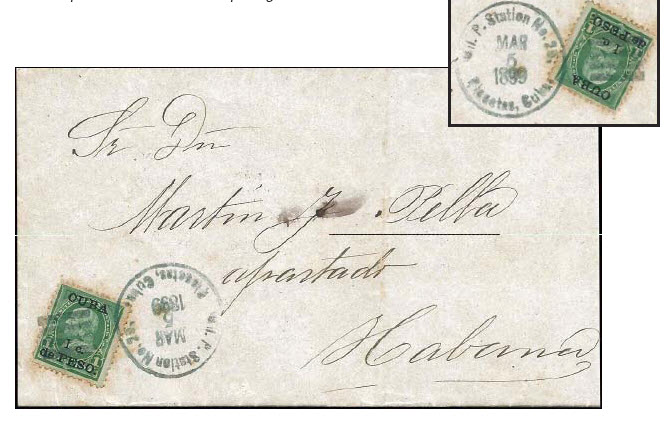 Mil. P. Station No. 28,
MAR
5
1899
Placetas, Cuba.
CUBA
1 c.
de PESO
Sr. Dn
Martín J. Pella
apartado
Habana
CUBA
1 c.
de PESO
Mil. P. Station No. 28,
MAR
5
1899
Placetas, Cuba.